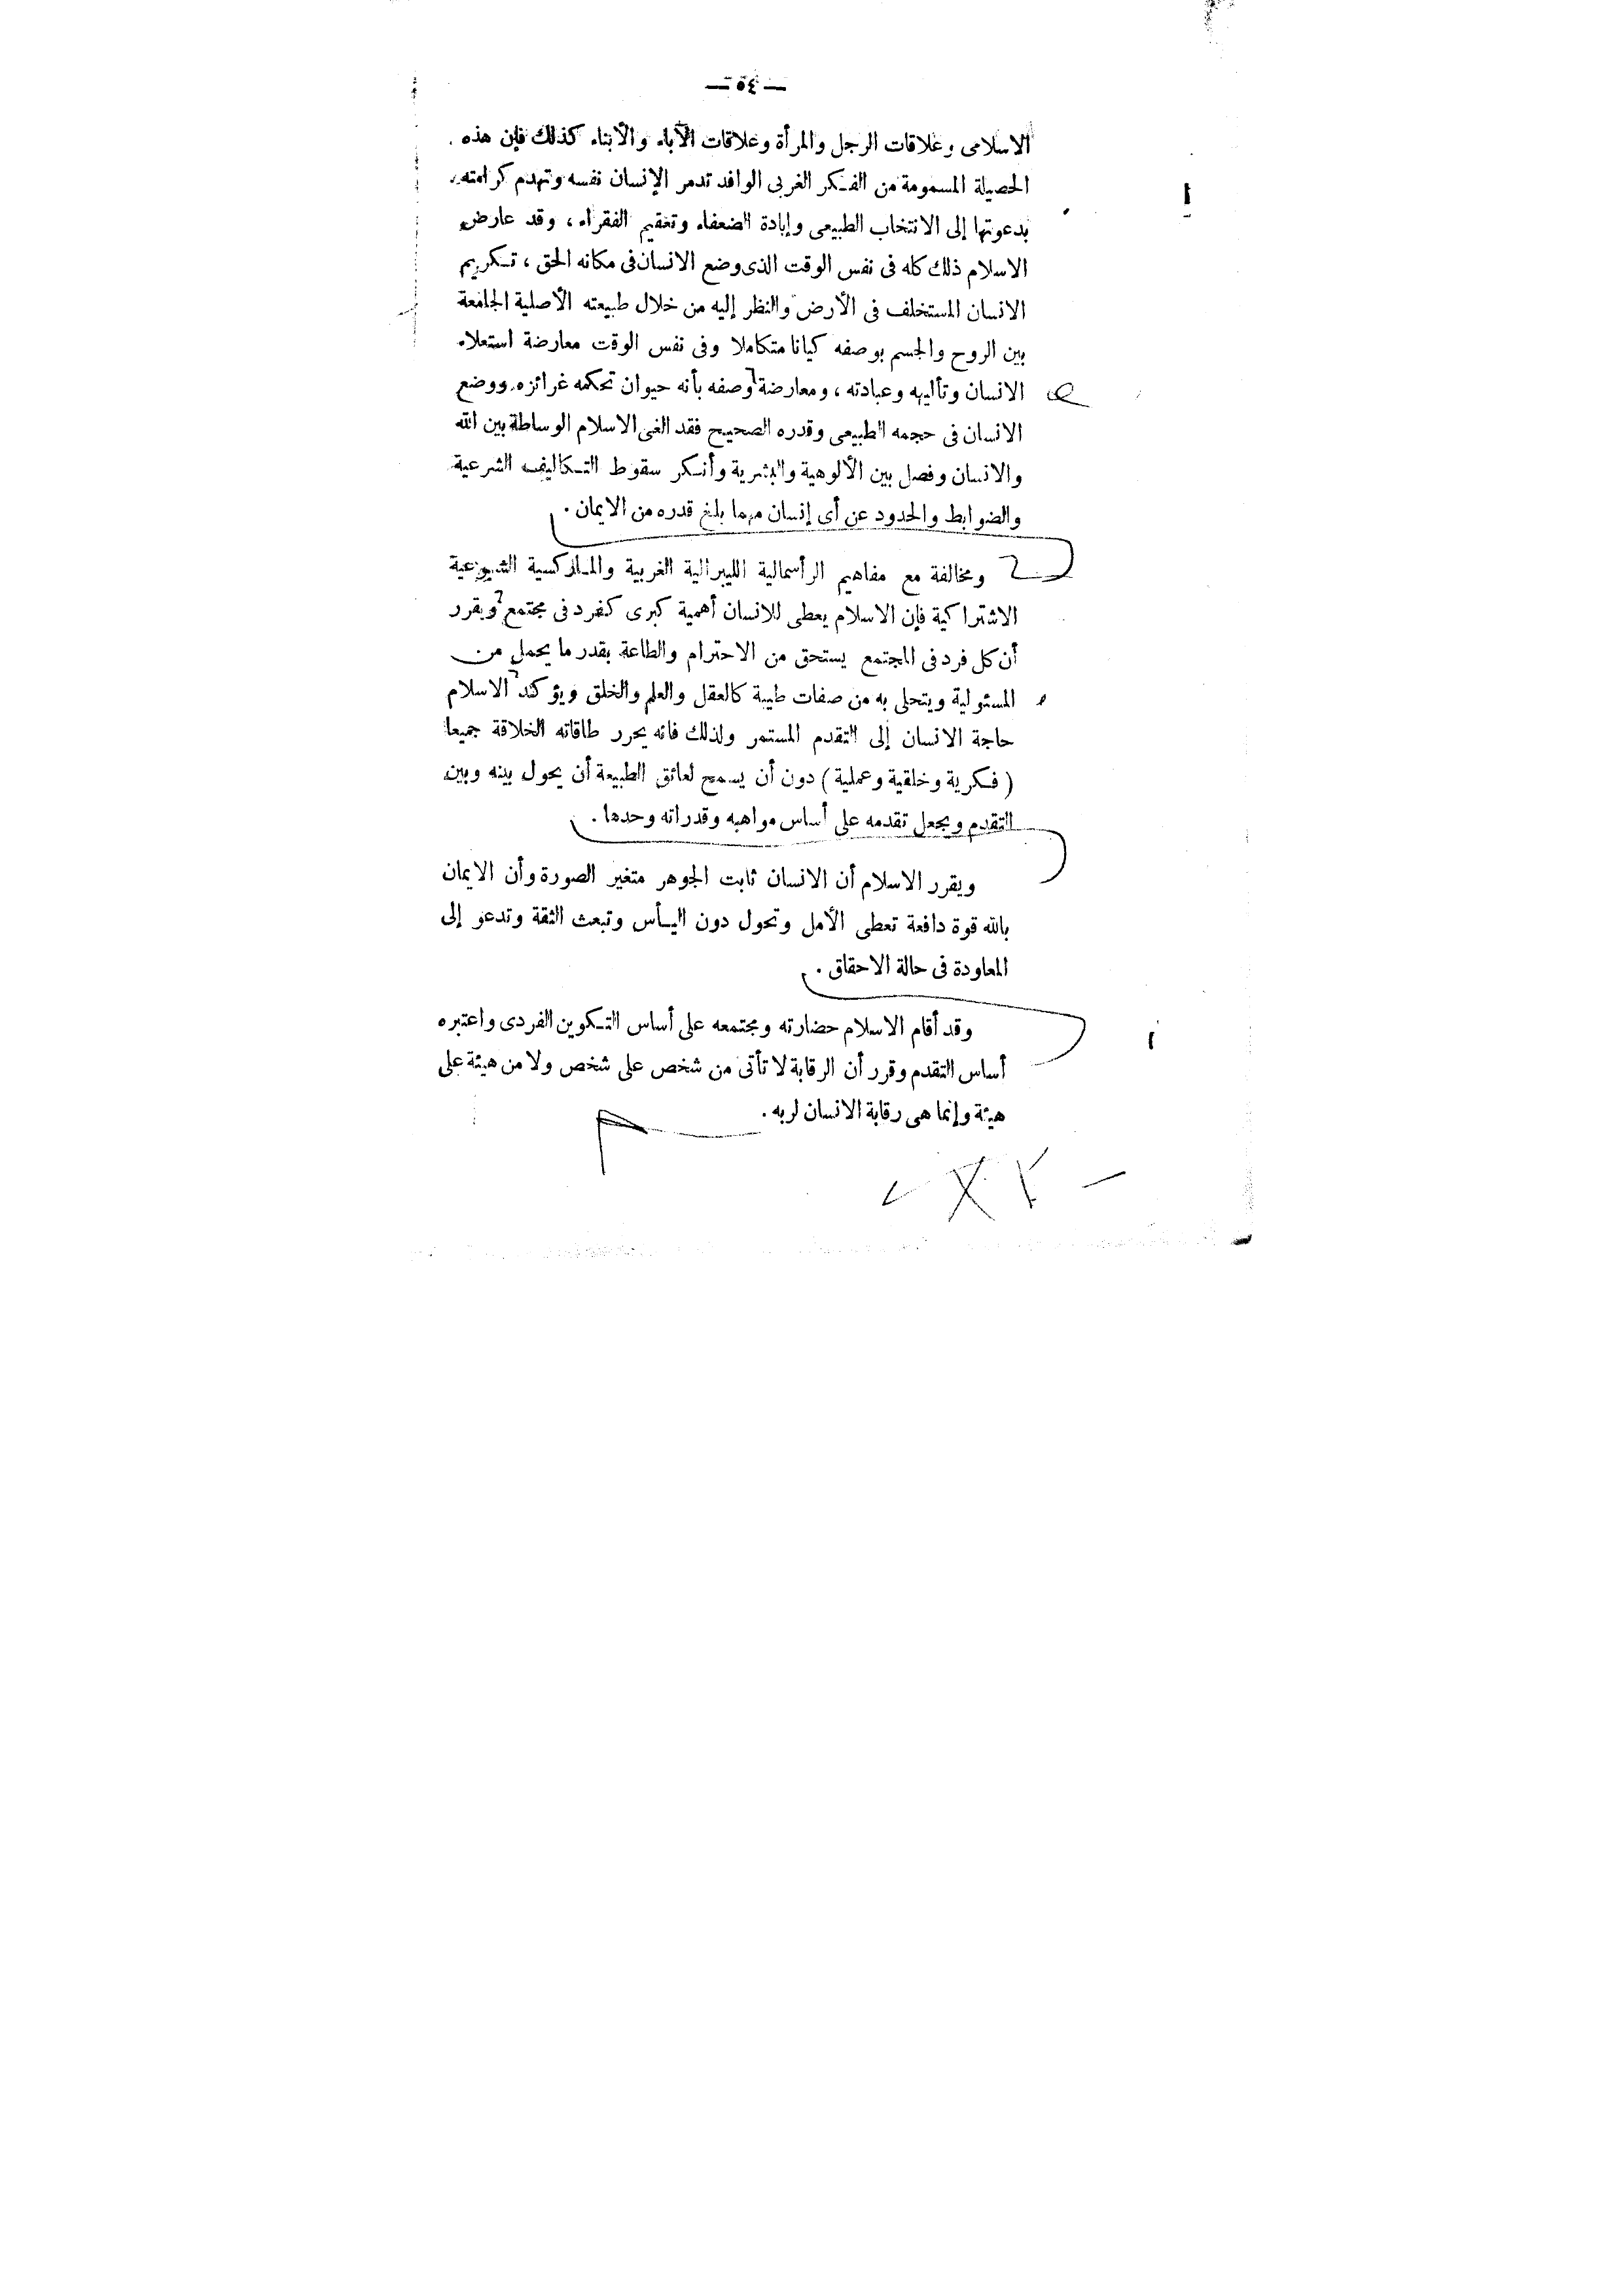 — ٥٤ —
الاسلامى وعلاقات الرجل والمرأة وعلاقات الآباء والأبناء كذلك فإن هذه
الحصيلة المسمومة من الفكر الغربى الوافد تدمر الإنسان نفسه وتهدم كرامته
بدعوتها إلى الانتخاب الطبيعى وإبادة الضعفاء وتعقيم الفقراء ، وقد عارض
الاسلام ذلك كله فى نفس الوقت الذى وضع الانسان فى مكانه الحق ، تكريم
الانسان المستخلف فى الأرض والنظر إليه من خلال طبيعته الأصلية الجامعة
بين الروح والجسم بوصفه كيانا متكاملا وفى نفس الوقت معارضة استعلاء
الانسان وتأليهه وعبادته ، ومعارضة وصفه بأنه حيوان تحكمه غرائزه ووضع
الانسان فى حجمه الطبيعى وقدره الصحيح فقد الغى الاسلام الوساطة بين الله
والانسان وفصل بين الألوهية والبشرية وأنكر سقوط التكاليف الشرعية
والضوابط والحدود عن أى إنسان مهما بلغ قدره من الايمان .
ومخالفة مع مفاهيم الرأسمالية الليبرالية الغربية والماركسية الشيوعية
الاشتراكية فإن الاسلام يعطى للانسان أهمية كبرى كفرد فى مجتمع ويقرر
أن كل فرد فى المجتمع يستحق من الاحترام والطاعة بقدر ما يحمل من
المسئولية ويتحلى به من صفات طيبة كالعقل والعلم والخلق ويؤكد الاسلام
حاجة الانسان إلى التقدم المستمر ولذلك فانه يحرر طاقاته الخلاقة جميعا
( فكرية وخلقية وعملية ) دون أن يسمح لعائق الطبيعة أن يحول بينه وبين
التقدم ويجعل تقدمه على أساس مواهبه وقدراته وحدها .
ويقرر الاسلام أن الانسان ثابت الجوهر متغير الصورة وأن الايمان
بالله قوة دافعة تعطى الأمل وتحول دون اليأس وتبعث الثقة وتدعو إلى
المعاودة فى حالة الاحقاق .
وقد أقام الاسلام حضارته ومجتمعه على أساس التكوين الفردى واعتبره
أساس التقدم وقرر أن الرقابة لا تأتى من شخص على شخص ولا من هيئة على
هيئة وإنما هى رقابة الانسان لربه .